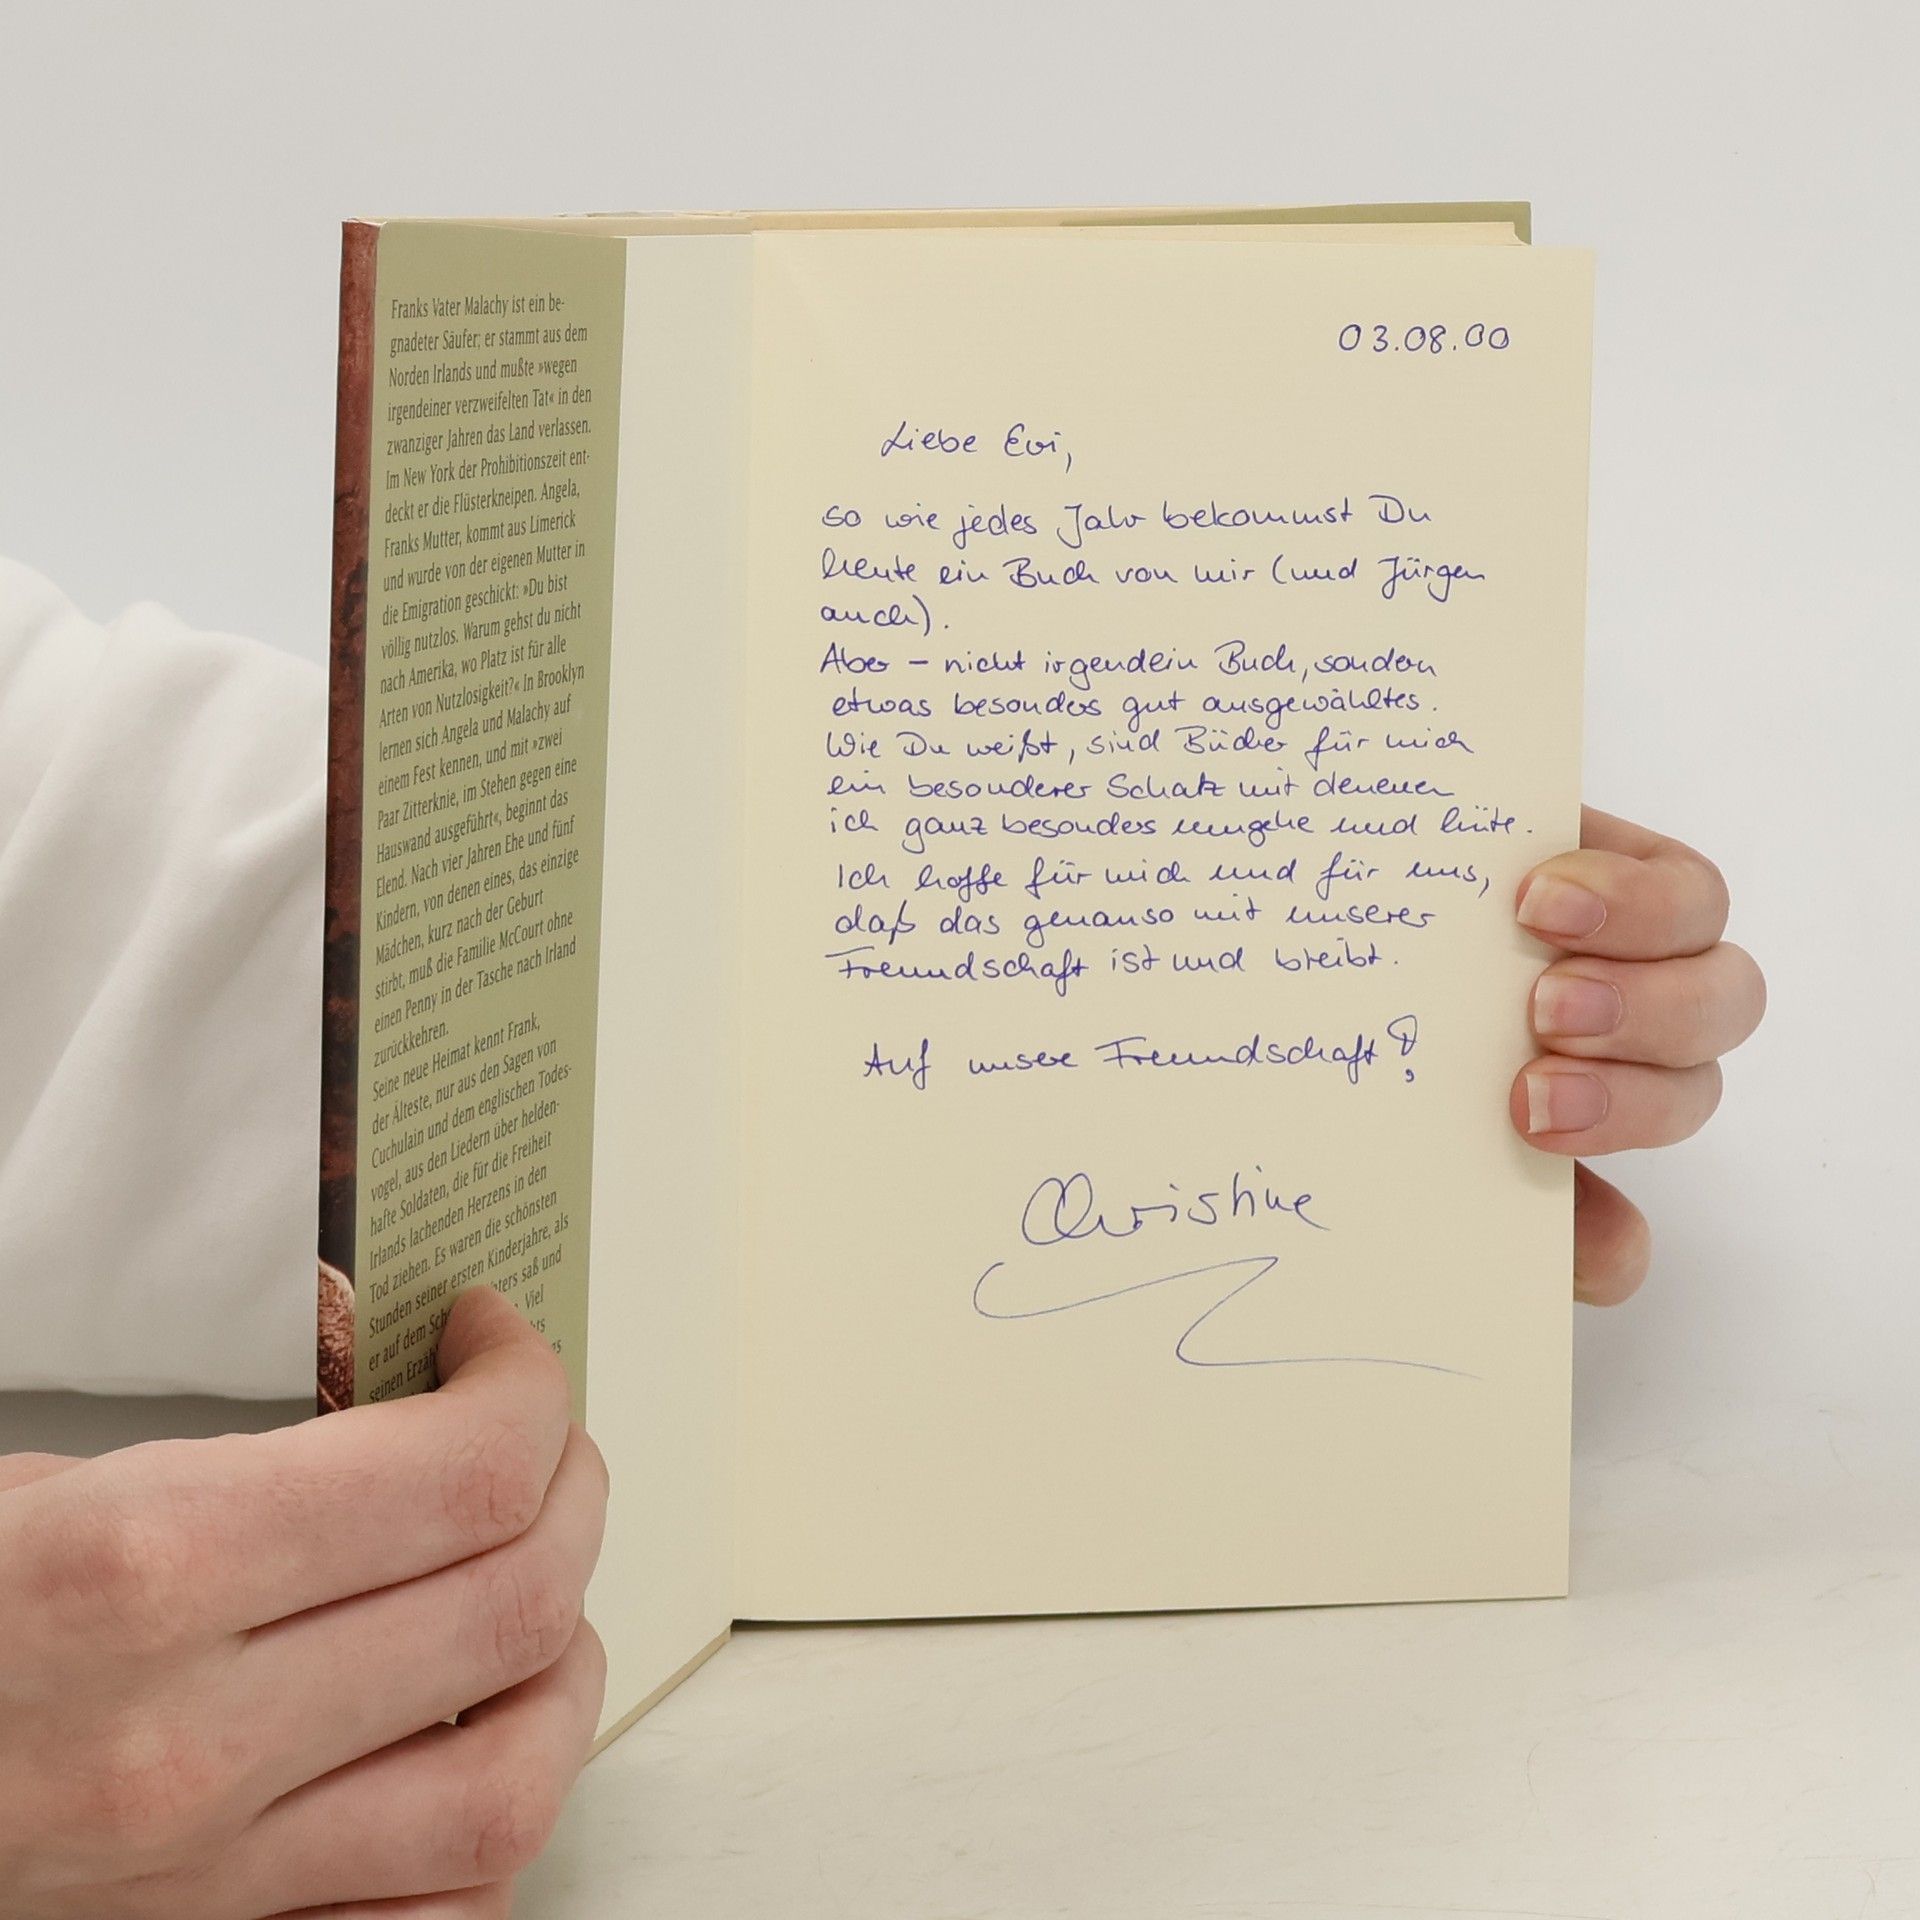 Franks Vater Malachy ist ein be-
gnadeter Säufer; er stammt aus dem
Norden Irlands und mußte »wegen
irgendeiner verzweifelten Tat« in den
zwanziger Jahren das Land verlassen.
Im New York der Prohibitionszeit ent-
deckt er die Flüsterkneipen. Angela,
Franks Mutter, kommt aus Limerick
und wurde von der eigenen Mutter in
die Emigration geschickt: »Du bist
völlig nutzlos. Warum gehst du nicht
nach Amerika, wo Platz ist für alle
Arten von Nutzlosigkeit?« In Brooklyn
lernen sich Angela und Malachy auf
einem Fest kennen, und mit »zwei
Paar Zitterknie, im Stehen gegen eine
Hauswand ausgeführt«, beginnt das
Elend. Nach vier Jahren Ehe und fünf
Kindern, von denen eines, das einzige
Mädchen, kurz nach der Geburt
stirbt, muß die Familie McCourt ohne
einen Penny in der Tasche nach Irland
zurückkehren.
Seine neue Heimat kennt Frank,
der Älteste, nur aus den Sagen von
Cuchulain und dem englischen Todes-
vogel, aus den Liedern über helden-
hafte Soldaten, die für die Freiheit
Irlands lachenden Herzens in den
Tod ziehen. Es waren die schönsten
Stunden seiner ersten Kinderjahre, als
er auf dem saß und
seinen Viel
03.08.00
Liebe Evi,
so wie jedes Jahr bekommst Du
heute ein Buch von mir (und Jürgen
auch).
Aber – nicht irgendein Buch, sondern
etwas besonders gut ausgewähltes.
Wie Du weißt, sind Bücher für mich
ein besonderer Schatz mit denenen
ich ganz besonders umgehe und hüte.
Ich hoffe für mich und für uns,
daß das genauso mit unserer
Freundschaft ist und bleibt.
Auf unsere Freundschaft!
Christine